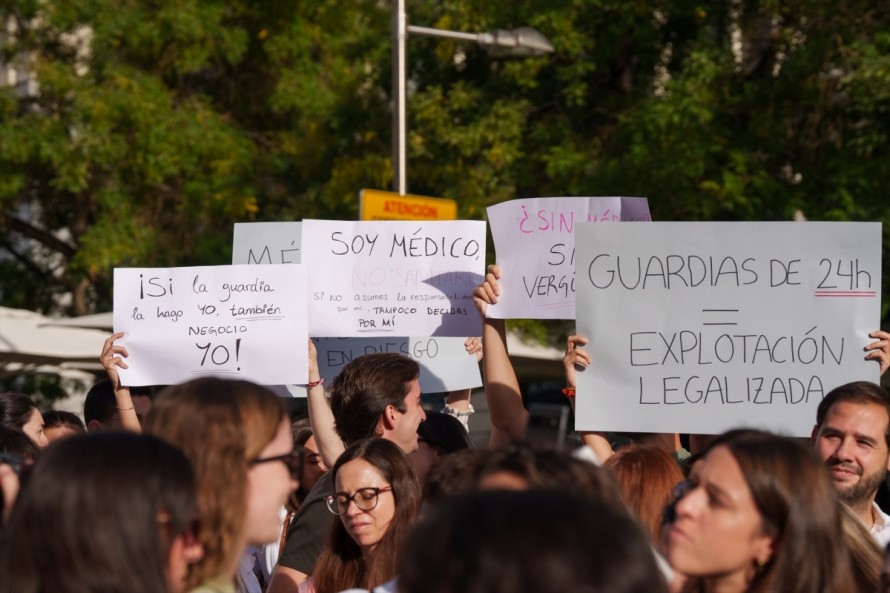 ATENCIÓN
¡Si la guardia
la hago YO, también
NEGOCIO
YO!
MÉ
EN RIESGO
SOY MÉDICO,
NO "SANITARI
SI no asumes la responsabilidad
por mí, TAMPOCO DECIDAS
POR MÍ
¿SIN MÉDICO
SI
VERGÜ
GUARDIAS DE 24h
=
EXPLOTACIÓN
LEGALIZADA